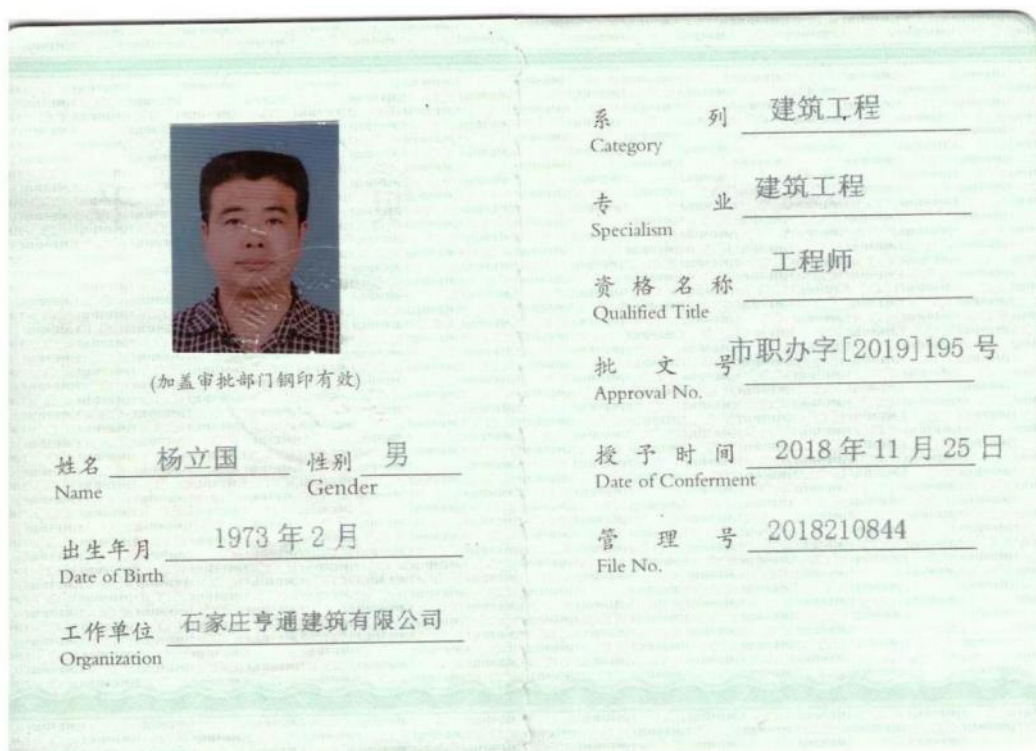 (加盖审批部门钢印有效)
姓名 杨立国 性别 男
Name Gender
出生年月 1973年2月
Date of Birth
工作单位 石家庄亨通建筑有限公司
Organization
系列 建筑工程
Category
专业 建筑工程
Specialism
资格名称 工程师
Qualified Title
批文号 市职办字[2019]195号
Approval No.
授予时间 2018年11月25日
Date of Conferment
管理号 2018210844
File No.